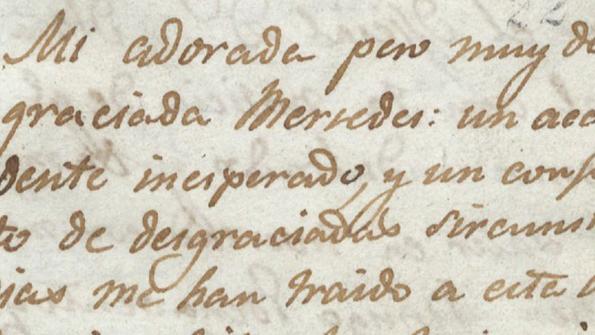 Mi adorada pero muy de
graciada Mersedes: un acc
dente inesperado, y un conju
to de desgraciadas sircuns
ias me han traido a esta